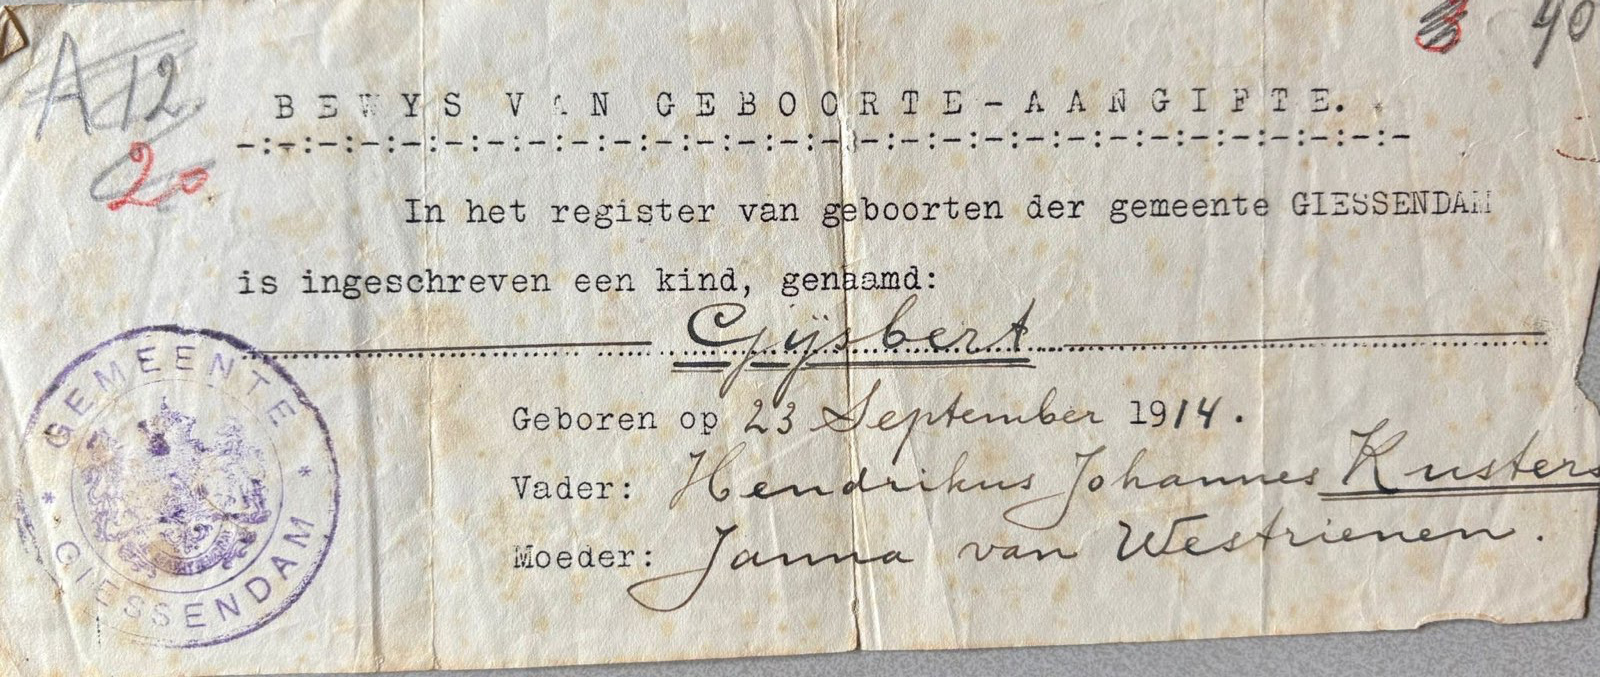 A 12
3 40
BEWYS VAN GEBOORTE-AANGIFTE.
-:-:-:-:-:-:-:-:-:-:-:-:-:-:-:-:-:-:-:-:-:-:-:-:-:-:-:-
20
In het register van geboorten der gemeente GIESSENDAM
is ingeschreven een kind, genaamd:
Gijsbert
Geboren op 23 September 1914.
Vader: Hendrikus Johannes Kusters
Moeder: Janna van Westrienen.
GEMEENTE
* GIESSENDAM *